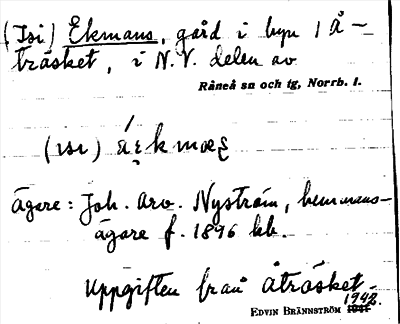 (Isi) Ekmans, gård i byn Å-
träsket, i N.V. delen av
Råneå sn och tg, Norrb. l.
(ısı)
Ägare: Joh. Arv. Nyström, hemmans-
ägare f. 1896 kb.
Uppgiften från Åträsket.
1942.
EDVIN BRÄNNSTRÖM 1941